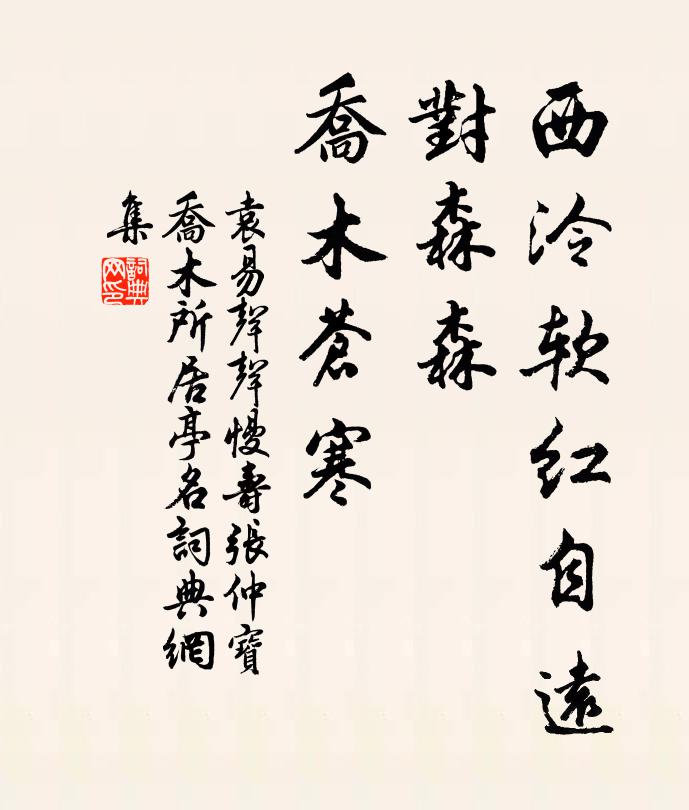 西泠软红自遠
對森森
喬木蒼寒
袁易聲聲慢壽張仲寶
喬木所居亭名詞典網
集
詞典網印